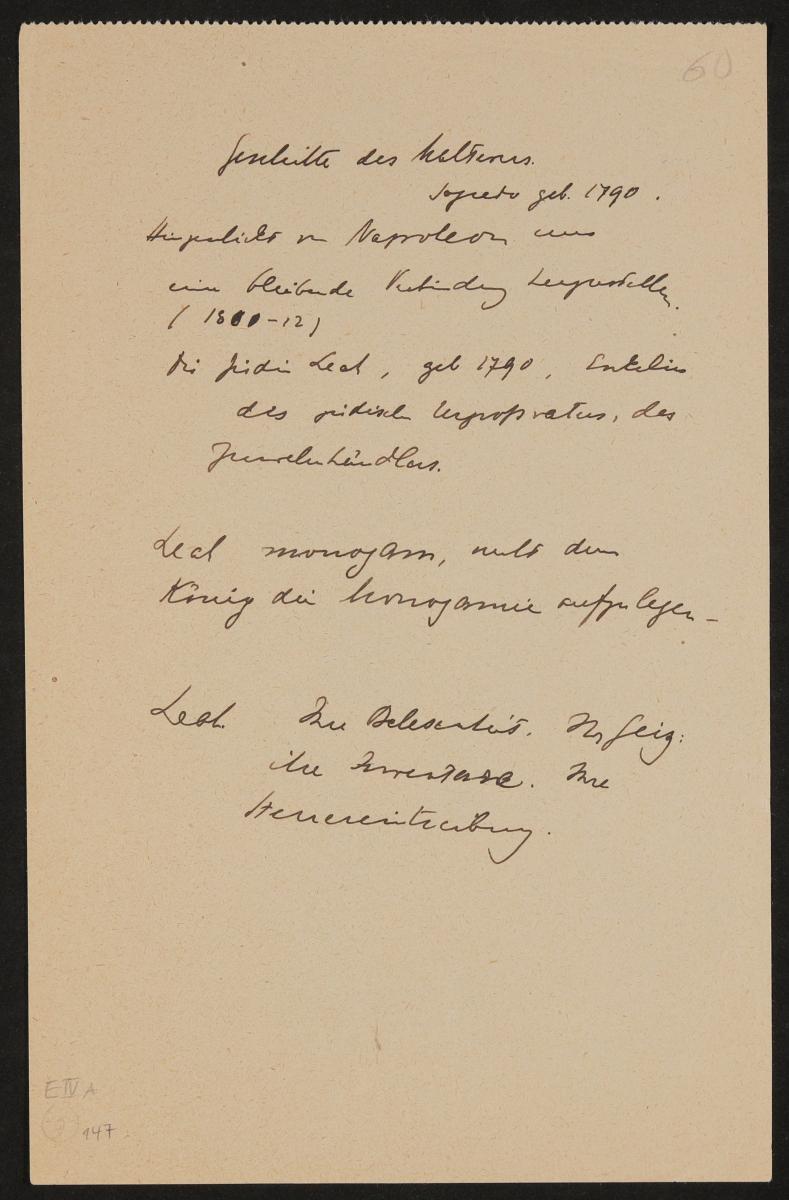 60
Geschichte des Malteners.
geb. 1790.
Hingeschickt von Napoleon um
eine bleibende Verbindung herzustellen.
(1800-12)
Die Jüdin Leah, geb 1790, Enkelin
des jüdischen Urgrossvaters, des
Juwelenhändlers.
Leah monogam, sucht dem
König die Monogamie aufzulegen -
Leah. Ihre Belesenheit. Ihr Geiz:
ihre. Ihre
Steuereintreibung.
E IV A
147